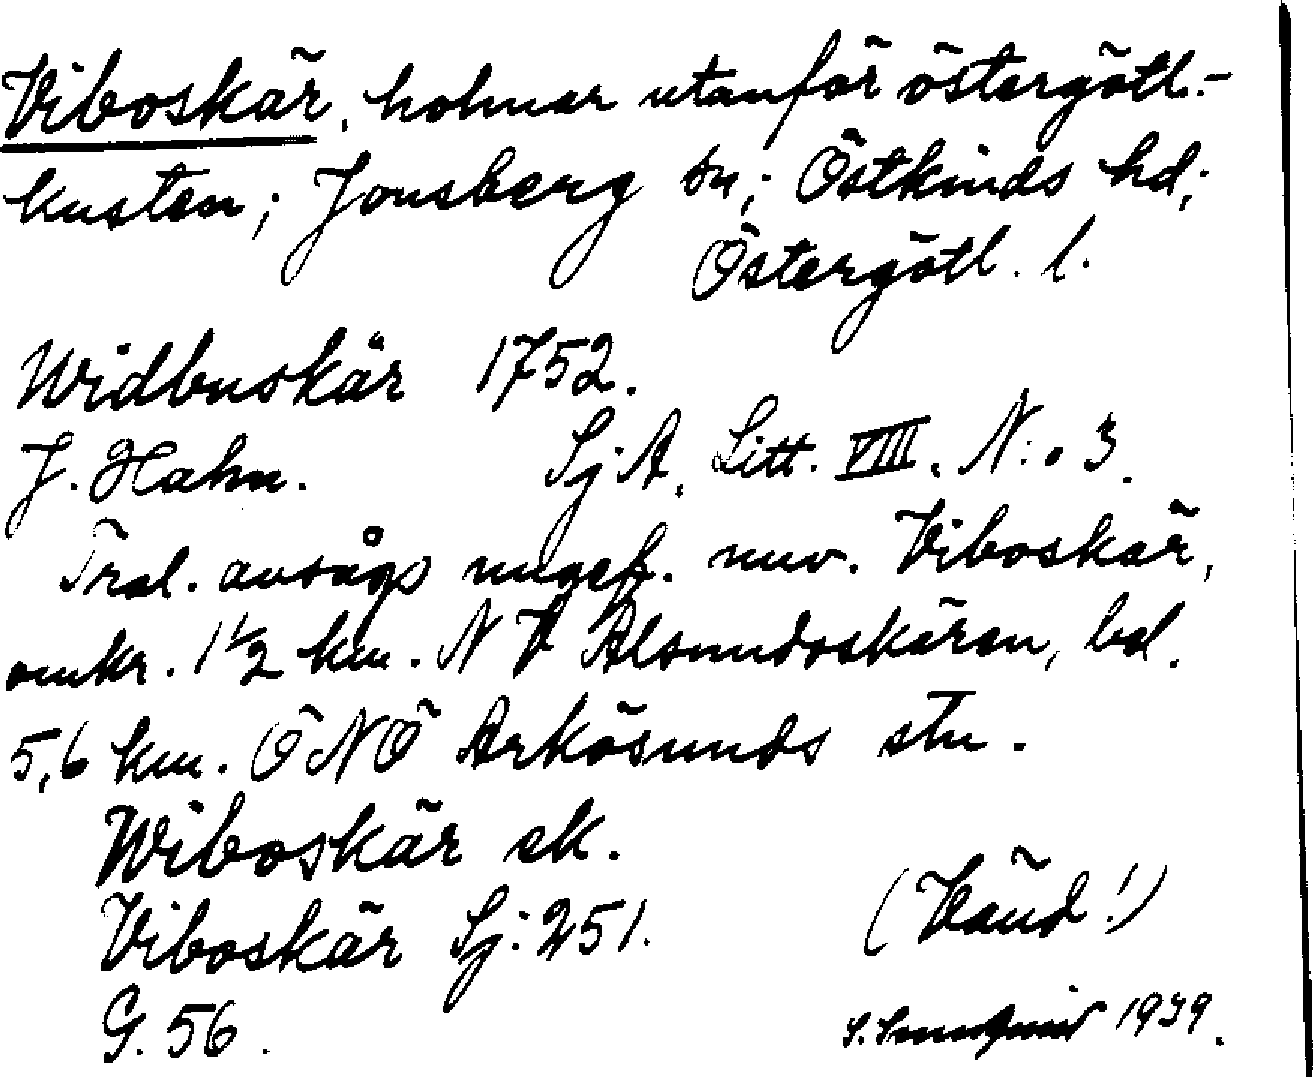 Viboskär, holmar utanför östergötl.-
kusten; Jonsberg sn; Östkinds hd;
Östergötl. l.
Widbuskär 1752.
J. Hahn. SjA, Litt. VIII, N:o 3.
Trol. avsågs ungef. nuv. Viboskär,
omkr. 1 1/2 km. N V Alsundsskären, bel.
5,6 km. ÖNÖ Arkösunds stn.
Wiboskär ek.
Viboskär Sj: 251.
(Vänd!)
G. 56.
1939.